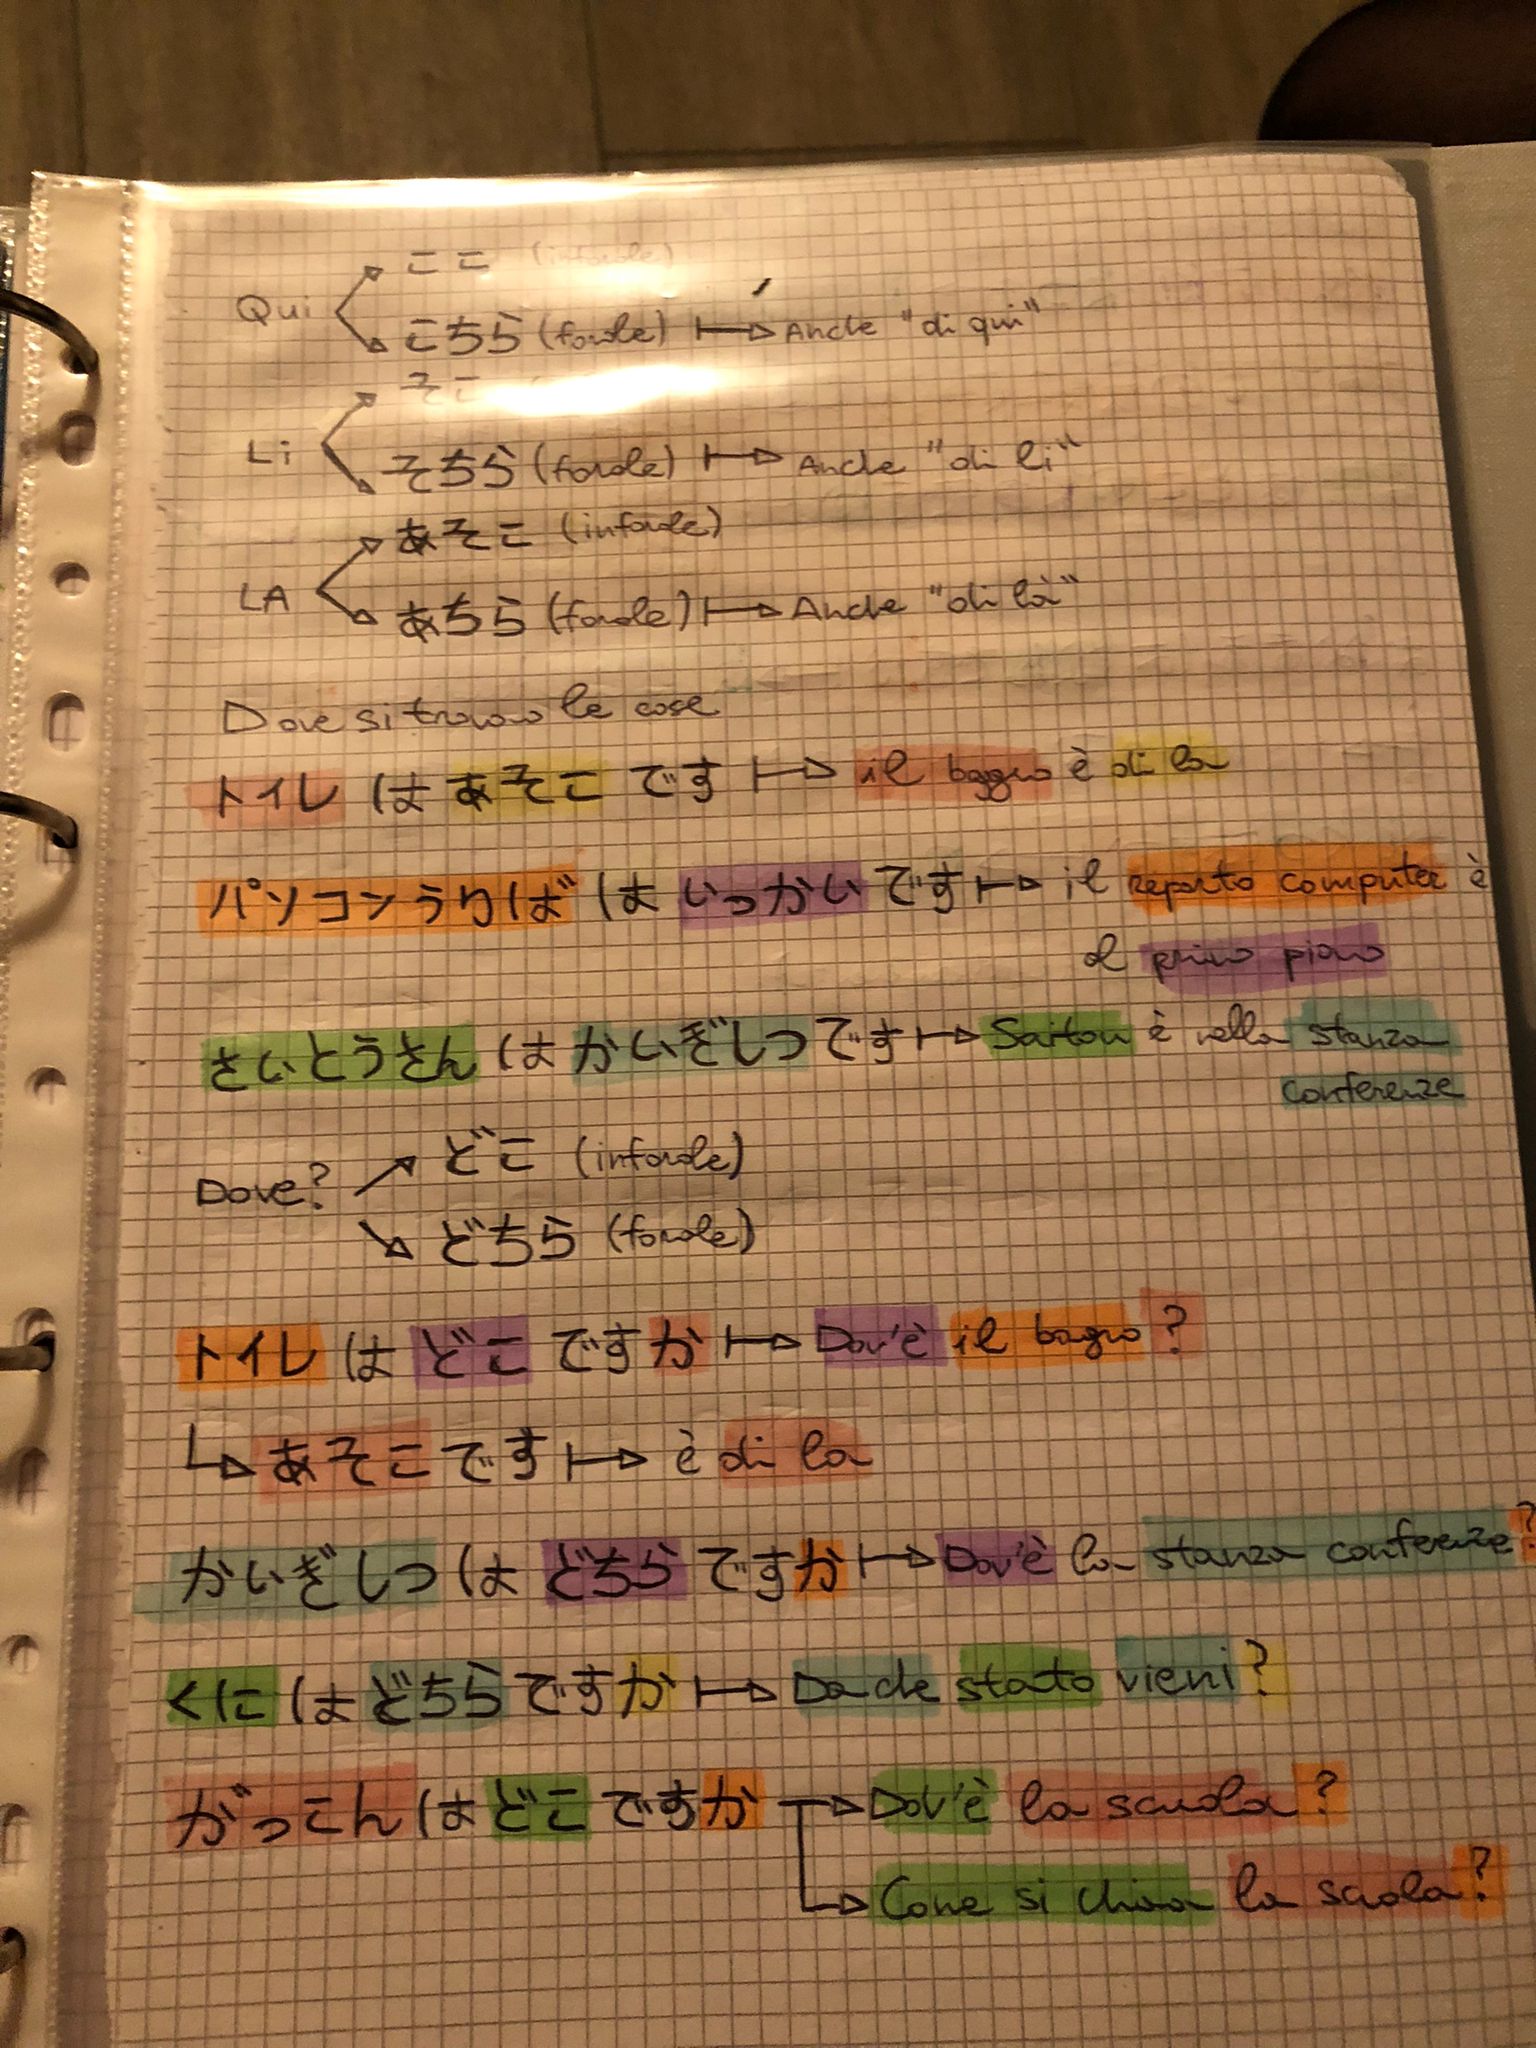 Qui
ここ (informale)
こちら (formale) → Anche "di qui"
Lì
そこ
そちら (formale) → Anche "di lì"
LA
あそこ (informale)
あちら (formale) → Anche "di là"
Dove si trovano le cose
トイレ は あそこ です → il bagno è di la
パソコンうりば は いっかい です → il reparto computer è
al primo piano
さいとうさん は かいぎしつ です → Saitou è nella stanza
conferenze
Dove?
どこ (informale)
どちら (formale)
トイレ は どこ ですか → Dov'è il bagno ?
↳ あそこ です → è di la
かいぎしつ は どちら ですか → Dov'è la stanza conferenze ?
くに は どちら ですか → Da che stato vieni ?
がっこん は どこ ですか → Dov'è la scuola ?
Come si chiama la scuola ?